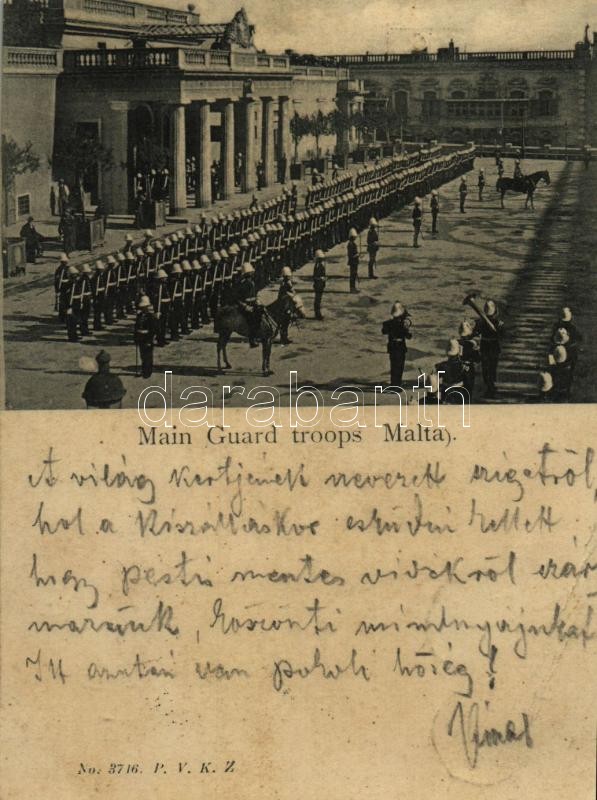 darabanth
Main Guard troops Malta).
A világ kertjének nevezett szigetről,
hol a kiszálláskor esküdni kellett
hogy pestis mentes vidékről szár
mazunk, köszönti mindnyájukat
Itt aztán van pokoli hőség!
No: 3716. P. V. K. Z